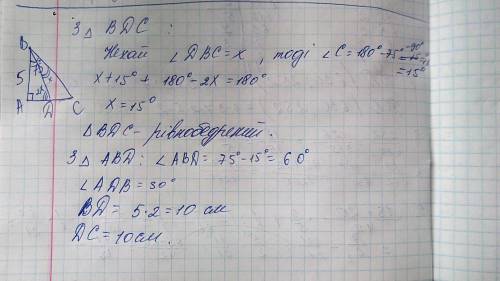 З △ BDC :
Нехай ∠DBC = x, тоді ∠C = 180° - 75° - 90° = 15°
x + 15° + 180° - 2x = 180°
x = 15°
△BDC - рівнобедрений.
З △ ABD: ∠ABD = 75° - 15° = 60°
∠ADB = 30°
BD = 5·2 = 10 см
DC = 10 см.
B
5
A
D
C